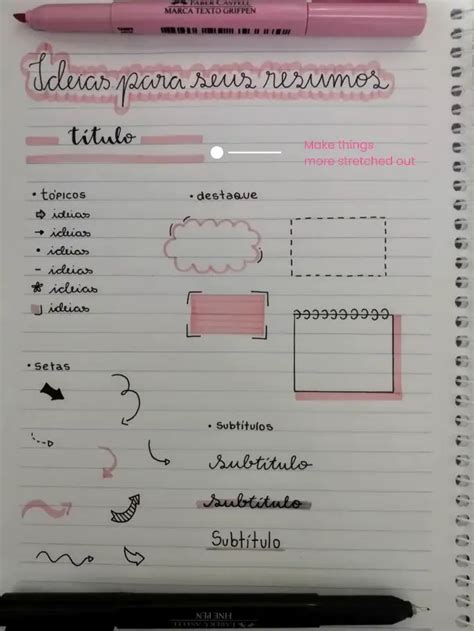 FABER CASTELL
MARCA TEXTO GRIFPEN
Ideias para seus resumos
título
Make things
more stretched out
• tópicos
⇨ ideias
→ ideias
• ideias
- ideias
* ideias
ideias
• destaque
• setas
• subtítulos
subtítulo
subtítulo
Subtítulo
FABER-CASTELL
FINE PEN